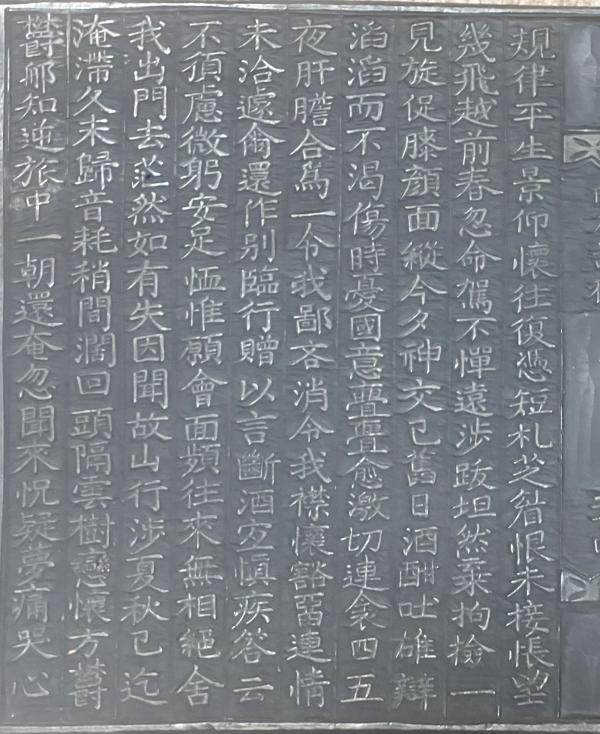 規律平生景仰懷往復憑短札芝眉恨未接悵望
幾飛越前春忽命駕不憚遠涉跋坦然棄拘撿一
見旋促膝顔面縱今夕神交已舊日酒酣吐雄辯
滔滔而不渴傷時憂國意疊疊愈激切連衾四五
夜肝膽合爲一令我鄙吝消令我襟懷豁留連情
未洽遽爾還作別臨行贈以言斷酒宜愼疾答云
不須慮微躬安足恤惟願會面頻往來無相絕舍
我出門去茫然如有失因聞故山行涉夏秋已迄
淹滯久未歸音耗稍間濶回頭隔雲樹戀懷方鬱
鬱那知逆旅中一朝還奄忽聞來怳疑夢痛哭心